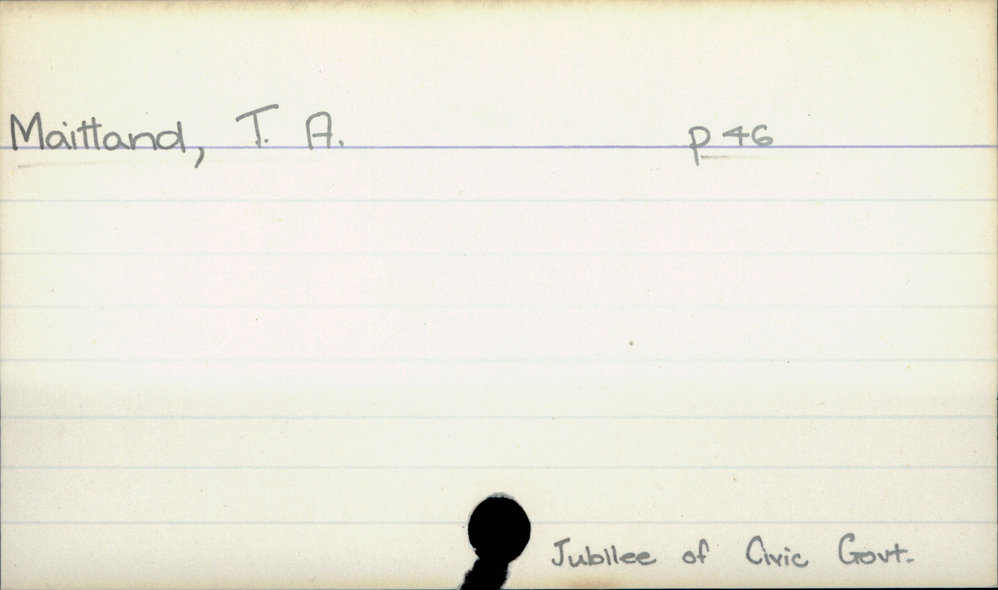 Maitland, T. A. p 46
Jubilee of Civic Govt.